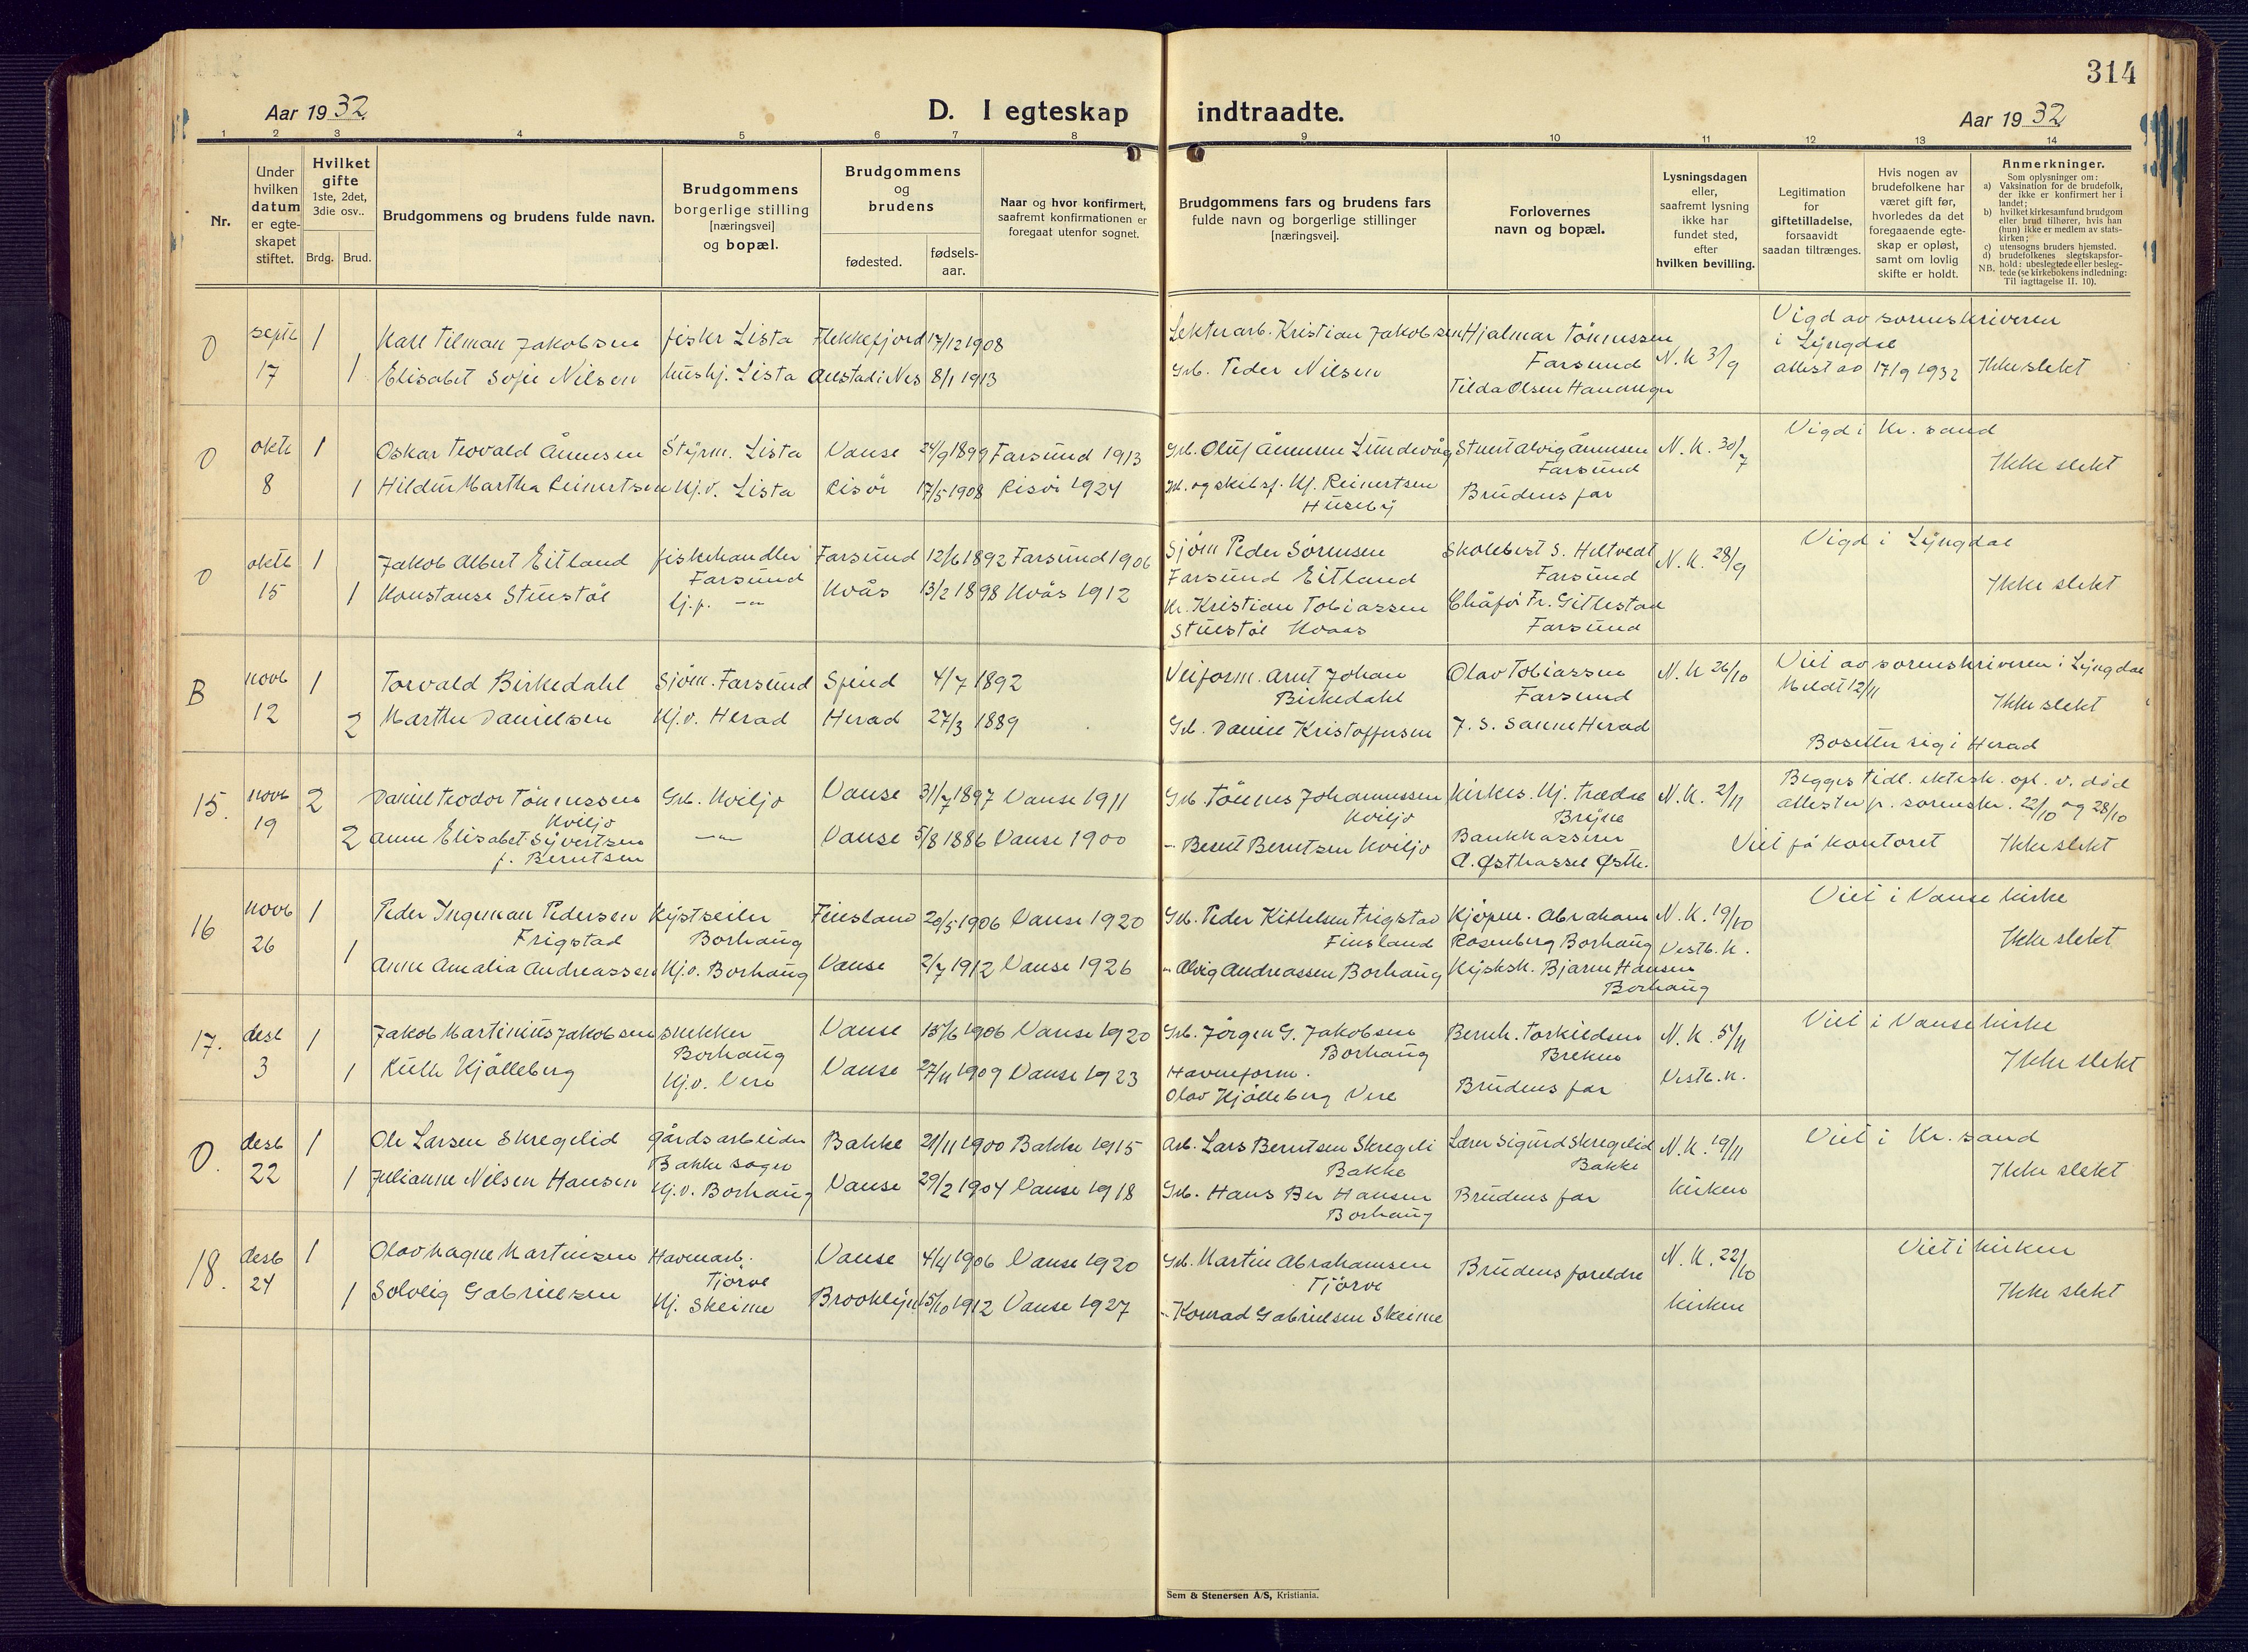 314
Aar 19 32
D. I egteskap indtraadte.
Aar 19 32
1 2 3 4 5 6 7 8 9 10 11 12 13 14
Nr.
Under hvilken datum er egte-skapet stiftet.
Hvilket gifte 1ste, 2det, 3die osv..
Brdg. Brud.
Brudgommens og brudens fulde navn.
Brudgommens borgerlige stilling [næringsvei] og bopæl.
Brudgommens og brudens
fødested.
fødsels-aar.
Naar og hvor konfirmert, saafremt konfirmationen er foregaat utenfor sognet.
Brudgommens fars og brudens fars fulde navn og borgerlige stillinger [næringsvei].
Forlovernes navn og bopæl.
Lysningsdagen eller, saafremt lysning ikke har fundet sted, efter hvilken bevilling.
Legitimation for giftetilladelse, forsaavidt saadan tiltrænges.
Hvis nogen av brudefolkene har været gift før, hvorledes da det foregaaende egte-skap er opløst, samt om lovlig skifte er holdt.
Anmerkninger.
Som oplysninger om:
a) Vaksination for de brudefolk, der ikke er konfirmert her i landet;
b) hvilket kirkesamfund brudgom eller brud tilhører, hvis han (hun) ikke er medlem av stats-kirken;
c) utensogns bruders hjemsted.
d) brudefolkenes slegtskapsfor-hold: ubeslegtede eller besleg-tede (se kirkebokens indledning: Til iagttagelse II. 10).
NB.
0 septb 17 1 Karl Tilman Jakobsen fiskr Lista Flekkefjord 17/12 1908 Lekterarb. Kristian Jakobsen Hjalmar Tönnessen Farsund N. K 3/9 Vigd av sorenskriveren i Lyngdal
1 Elisabet Sofie Nilsen hushj. Lista Austad i Nes 8/1 1913 Grb. Peder Nilsen Tilda Olsen attest av 17/9 1932 Ikke slekt
0 oktb 8 1 Oskar Teovald Ånensen Styrm. Lista Vanse 24/9 1899 Farsund 1913 Grb. Oluf Ånensen Lundevåg Stuert Alvig Ånensen Farsund N. K. 30/7 Vigd i Kr. sand
1 Hildur Martha Reinertsen Hj.v. Lista Risör 17/5 1908 Risör 1924 Grb. og skibsf. Kf. Reinertsen Huseby Brudens far Ikke slekt
0 oktb 15 1 Jakob Albert Eitland fiskehandler Farsund Farsund 12/6 1892 Farsund 1906 Sjöm Peder Sörensen Farsund Eitland Skolebest S. Heltvedt Farsund N. K. 28/9 Vigd i Lyngdal
1 Konstanse Stuestöl Kvås 13/2 1898 Kvås 1912 Kr. Kristian Tobiassen Stuestöl Kvaas Chåför Fr. Gitlestad Farsund Ikke slekt
B novb 12 1 Torvald Birkedahl Sjöm. Farsund Spind 4/7 1892 Veiform. Arnt Johan Birkedahl Olav Tobiassen Farsund N. K 26/10 Viet av sorenskriveren i Lyngdal Meldt 12/11
2 Marthe Danielsen Hj.v. Herad Herad 27/3 1889 Grb. Daniel Kristoffersen J. S. Sanne Herad Ikke slekt
Bosetter sig i Herad
15. novb 19 2 Daniel Teodor Tönnessen Kviljo Grb. Kviljo Vanse 31/7 1897 Vanse 1911 Grb. Tönnes Johannessen Kviljo Kirkes. Hj. Trædal Bryne N. K. 2/11 Begges tidl. ektesk. opl. v. död attester fr. sorenskr. 22/10 og 28/10
2 Anne Elisabet Syvertsen f. Berntsen —"— Vanse 5/8 1886 Vanse 1900 " Berent Berntsen Kviljo Bankkasserer A. Østhassel Østh. Viet på kontoret Ikke slekt
16 novb 26 1 Peder Ingeman Pedersen Frigstad Kystseiler Borhaug Finsland 20/5 1906 Vanse 1920 Grb. Peder Kittelsen Frigstad Finsland Kjöpm. Abraham Rosenberg Borhaug N. K. 19/10 Vestb. K. Viet i Vanse kirke
1 Anne Amalia Andreassen Hj.v. Borhaug Vanse 2/7 1912 Vanse 1926 " Alvig Andreassen Borhaug Kystsk. Bjarne Hansen Borhaug Ikke slekt
17. desb 3 1 Jakob Martinius Jakobsen snekker Borhaug Vanse 15/6 1906 Vanse 1920 Grb. Jörgen G. Jakobsen Borhaug Bernh. Torkildsen Brekne N. K. 5/11 Vestb. K. Viet i Vanse kirke
1 Ruth Kjölleberg Hj.v. Vere Vanse 27/11 1909 Vanse 1923 Havneform. Olav Kjölleberg Vere Brudens far Ikke slekt
0. desb 22 1 Ole Larsen Skregelid gårdsarbeider Bakke sogn Bakke 21/11 1900 Bakke 1915 Arb. Lars Berntsen Skregeli Bakke Lærer Sigurd Skregelid Bakke N. K. 19/11 kirken Viet i Kr. sand
1 Julianne Nilsen Hansen Hj.v. Borhaug Vanse 29/2 1904 Vanse 1918 Grb. Hans Ber Hansen Borhaug Brudens far Ikke slekt
18. desb 24 1 Olav Magne Martinsen Havnearb. Tjörve Vanse 4/4 1906 Vanse 1920 Grb. Martin Abrahamsen Tjörve Brudens foreldre N. K. 22/10 kirken Viet i kirken
1 Solveig Gabrielsen Hj. Skeime Brooklyn 15/10 1912 Vanse 1927 " Konrad Gabrielsen Skeime Ikke slekt
Sem & Stenersen A/S, Kristiania.